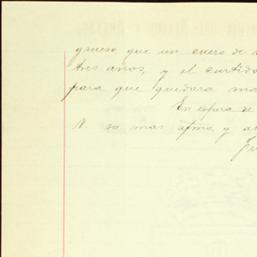 grueso que un cuero de
tres años, y el curtido
para que quedara
En espera de
su mas atmo y